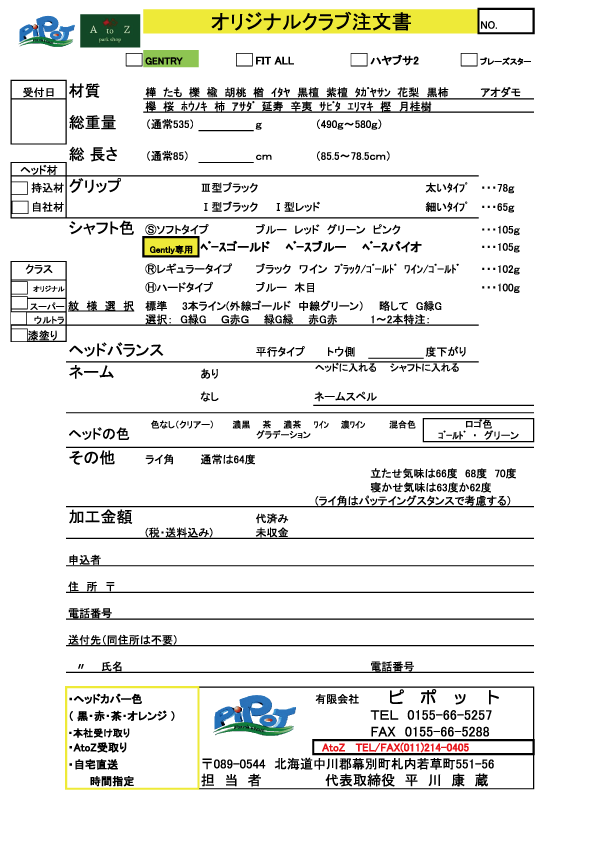 PiPoT
A to Z
park shop
オリジナルクラブ注文書
NO.
GENTRY
FIT ALL
ハヤブサ2
ブレーズスター
受付日
材質 樺 たも 櫟 楡 胡桃 楢 イタヤ 黒檀 紫檀 タガヤサン 花梨 黒柿 アオダモ
欅 桜 ホウノキ 柿 アサダ 延寿 辛夷 サビタ エリマキ 樫 月桂樹
総重量 (通常535) g (490g~580g)
総 長さ (通常85) cm (85.5~78.5cm)
ヘッド材
持込材
自社材
グリップ Ⅲ型ブラック 太いタイプ ・・・78g
Ⅰ型ブラック Ⅰ型レッド 細いタイプ ・・・65g
シャフト色 Ⓢソフトタイプ ブルー レッド グリーン ピンク ・・・105g
Gently専用 ベースゴールド ベースブルー ベースバイオ ・・・105g
Ⓡレギュラータイプ ブラック ワイン ブラック/ゴールド ワイン/ゴールド ・・・102g
Ⓗハードタイプ ブルー 木目 ・・・100g
クラス
オリジナル
スーパー
ウルトラ
漆塗り
紋 様 選 択 標準 3本ライン(外線ゴールド 中線グリーン) 略して G緑G
選択: G緑G G赤G 緑G緑 赤G赤 1~2本特注:
ヘッドバランス 平行タイプ トウ側 度下がり
ネーム あり ヘッドに入れる シャフトに入れる
なし ネームスペル
ヘッドの色 色なし(クリアー) 濃黒 茶 濃茶 ワイン 濃ワイン 混合色
グラデーション
ロゴ色
ゴールド ・ グリーン
その他 ライ角 通常は64度
立たせ気味は66度 68度 70度
寝かせ気味は63度か62度
(ライ角はパッテイングスタンスで考慮する)
加工金額 代済み
(税・送料込み) 未収金
申込者
住 所 〒
電話番号
送付先(同住所は不要)
〃 氏名 電話番号
・ヘッドカバー色
( 黒・赤・茶・オレンジ )
・本社受け取り
・AtoZ受取り
・自宅直送
時間指定
PiPoT
有限会社 ピ ポ ッ ト
TEL 0155-66-5257
FAX 0155-66-5288
AtoZ TEL/FAX(011)214-0405
〒089-0544 北海道中川郡幕別町札内若草町551-56
担 当 者 代表取締役 平 川 康 蔵